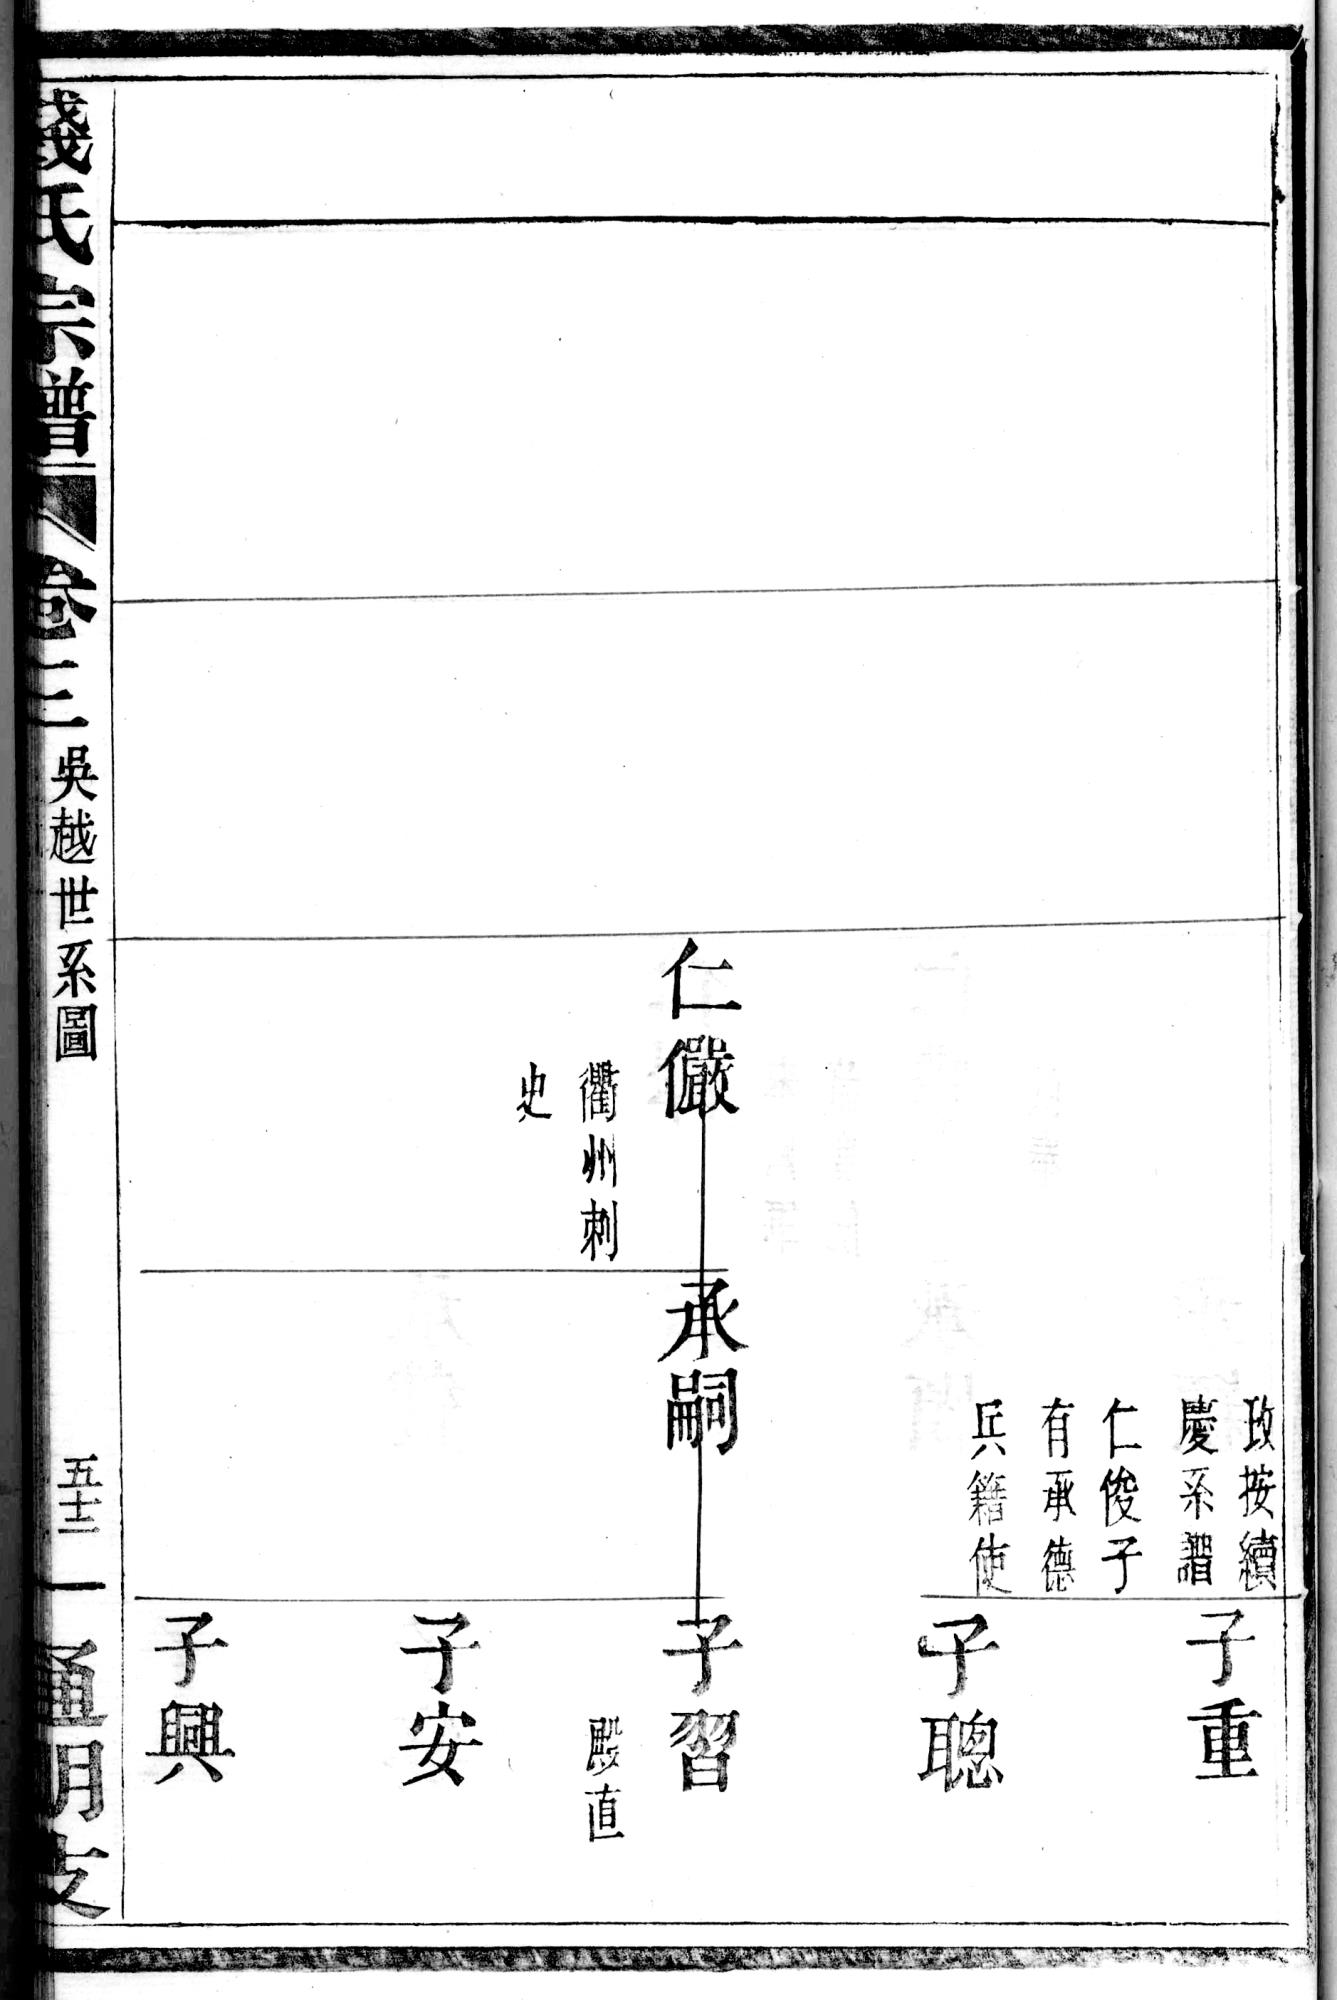 攷按續
慶系譜
仁俊子
有承德
兵籍使
子重
子聰
仁儼
衢州刺
史
承嗣
子習
殿直
子安
子興
錢氏宗譜
卷三
吳越世系圖
五十二
通明支